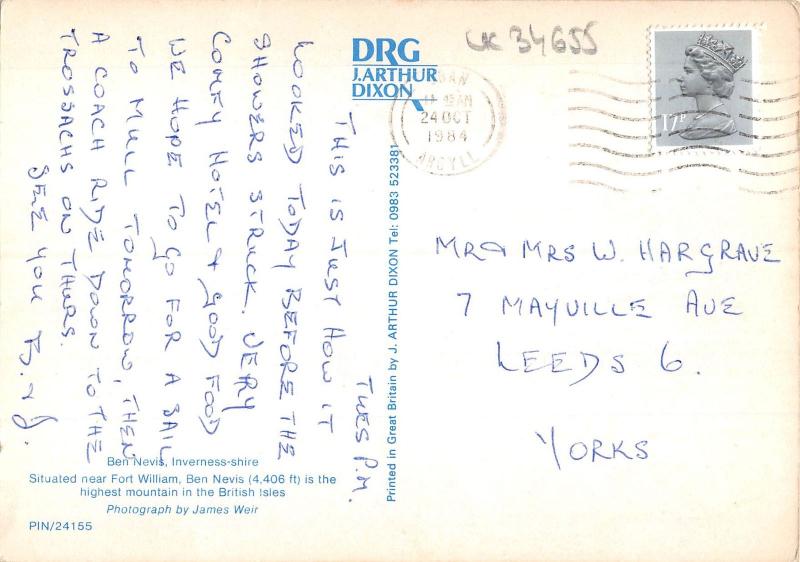 TUES P.M.
THIS IS JUST HOW IT
LOOKED TODAY BEFORE THE
SHOWERS STRUCK. VERY
COMFY HOTEL & GOOD FOOD
WE HOPE TO GO FOR A SAIL
TO MULL TOMORROW, THEN
A COACH RIDE DOWN TO THE
TROSSACHS ON THURS.
SEE YOU B. & J.
DRG
J.ARTHUR
DIXON
UK 34655
24 OCT
1984
ARGYLL
17P
Printed in Great Britain by J. ARTHUR DIXON Tel: 0983 523381
MR & MRS W. HARGRAVE
7 MAYVILLE AVE
LEEDS 6.
YORKS
Ben Nevis, Inverness-shire
Situated near Fort William, Ben Nevis (4,406 ft) is the
highest mountain in the British Isles
Photograph by James Weir
PIN/24155